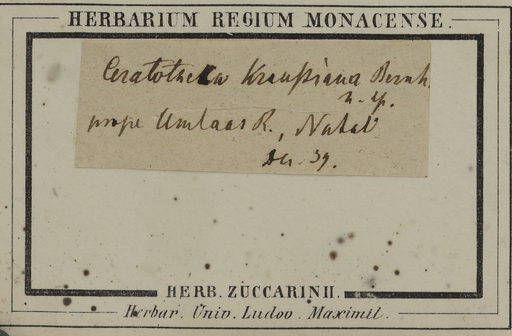 HERBARIUM REGIUM MONACENSE.
Ceratotheca Kraußiana Bernh.
n. sp.
prope Umlaas R., Natal
Dec. 39.
HERB. ZUCCARINII.
Herbar. Univ. Ludov. Maximil.